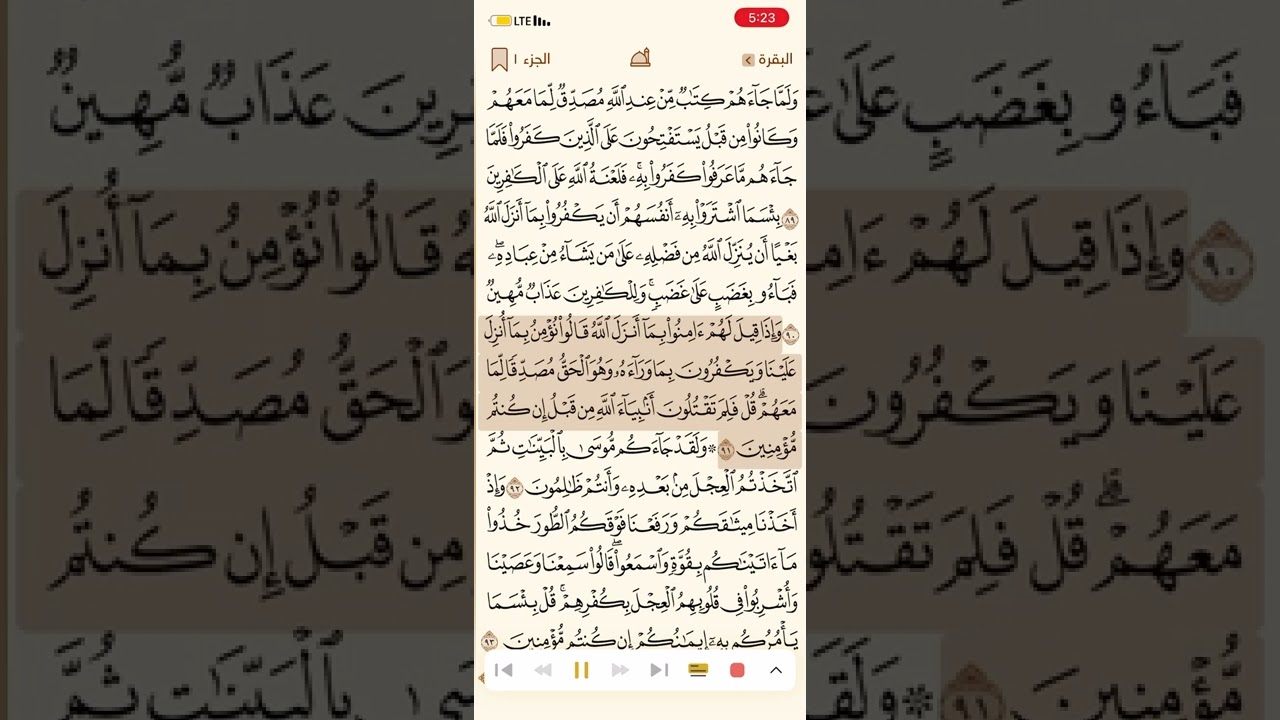 LTE
5:23
البقرة
الجزء ١
وَلَمَّا جَآءَهُمْ كِتَٰبٌ مِّنْ عِندِ ٱللَّهِ مُصَدِّقٌ لِّمَا مَعَهُمْ
وَكَانُوا۟ مِن قَبْلُ يَسْتَفْتِحُونَ عَلَى ٱلَّذِينَ كَفَرُوا۟ فَلَمَّا
جَآءَهُم مَّا عَرَفُوا۟ كَفَرُوا۟ بِهِۦ ۚ فَلَعْنَةُ ٱللَّهِ عَلَى ٱلْكَٰفِرِينَ
٨٩ بِئْسَمَا ٱشْتَرَوْا۟ بِهِۦٓ أَنفُسَهُمْ أَن يَكْفُرُوا۟ بِمَآ أَنزَلَ ٱللَّهُ
بَغْيًا أَن يُنَزِّلَ ٱللَّهُ مِن فَضْلِهِۦ عَلَىٰ مَن يَشَآءُ مِنْ عِبَادِهِۦ ۖ
فَبَآءُو بِغَضَبٍ عَلَىٰ غَضَبٍ ۚ وَلِلْكَٰفِرِينَ عَذَابٌ مُّهِينٌ
٩٠ وَإِذَا قِيلَ لَهُمْ ءَامِنُوا۟ بِمَآ أَنزَلَ ٱللَّهُ قَالُوا۟ نُؤْمِنُ بِمَآ أُنزِلَ
عَلَيْنَا وَيَكْفُرُونَ بِمَا وَرَآءَهُۥ وَهُوَ ٱلْحَقُّ مُصَدِّقًا لِّمَا
مَعَهُمْ ۗ قُلْ فَلِمَ تَقْتُلُونَ أَنۢبِيَآءَ ٱللَّهِ مِن قَبْلُ إِن كُنتُم
مُّؤْمِنِينَ ٩١ ۞ وَلَقَدْ جَآءَكُم مُّوسَىٰ بِٱلْبَيِّنَٰتِ ثُمَّ
ٱتَّخَذْتُمُ ٱلْعِجْلَ مِنۢ بَعْدِهِۦ وَأَنتُمْ ظَٰلِمُونَ ٩٢ وَإِذْ
أَخَذْنَا مِيثَٰقَكُمْ وَرَفَعْنَا فَوْقَكُمُ ٱلطُّورَ خُذُوا۟
مَآ ءَاتَيْنَٰكُم بِقُوَّةٍ وَٱسْمَعُوا۟ ۖ قَالُوا۟ سَمِعْنَا وَعَصَيْنَا
وَأُشْرِبُوا۟ فِى قُلُوبِهِمُ ٱلْعِجْلَ بِكُفْرِهِمْ ۚ قُلْ بِئْسَمَا
يَأْمُرُكُم بِهِۦٓ إِيمَٰنُكُمْ إِن كُنتُم مُّؤْمِنِينَ ٩٣